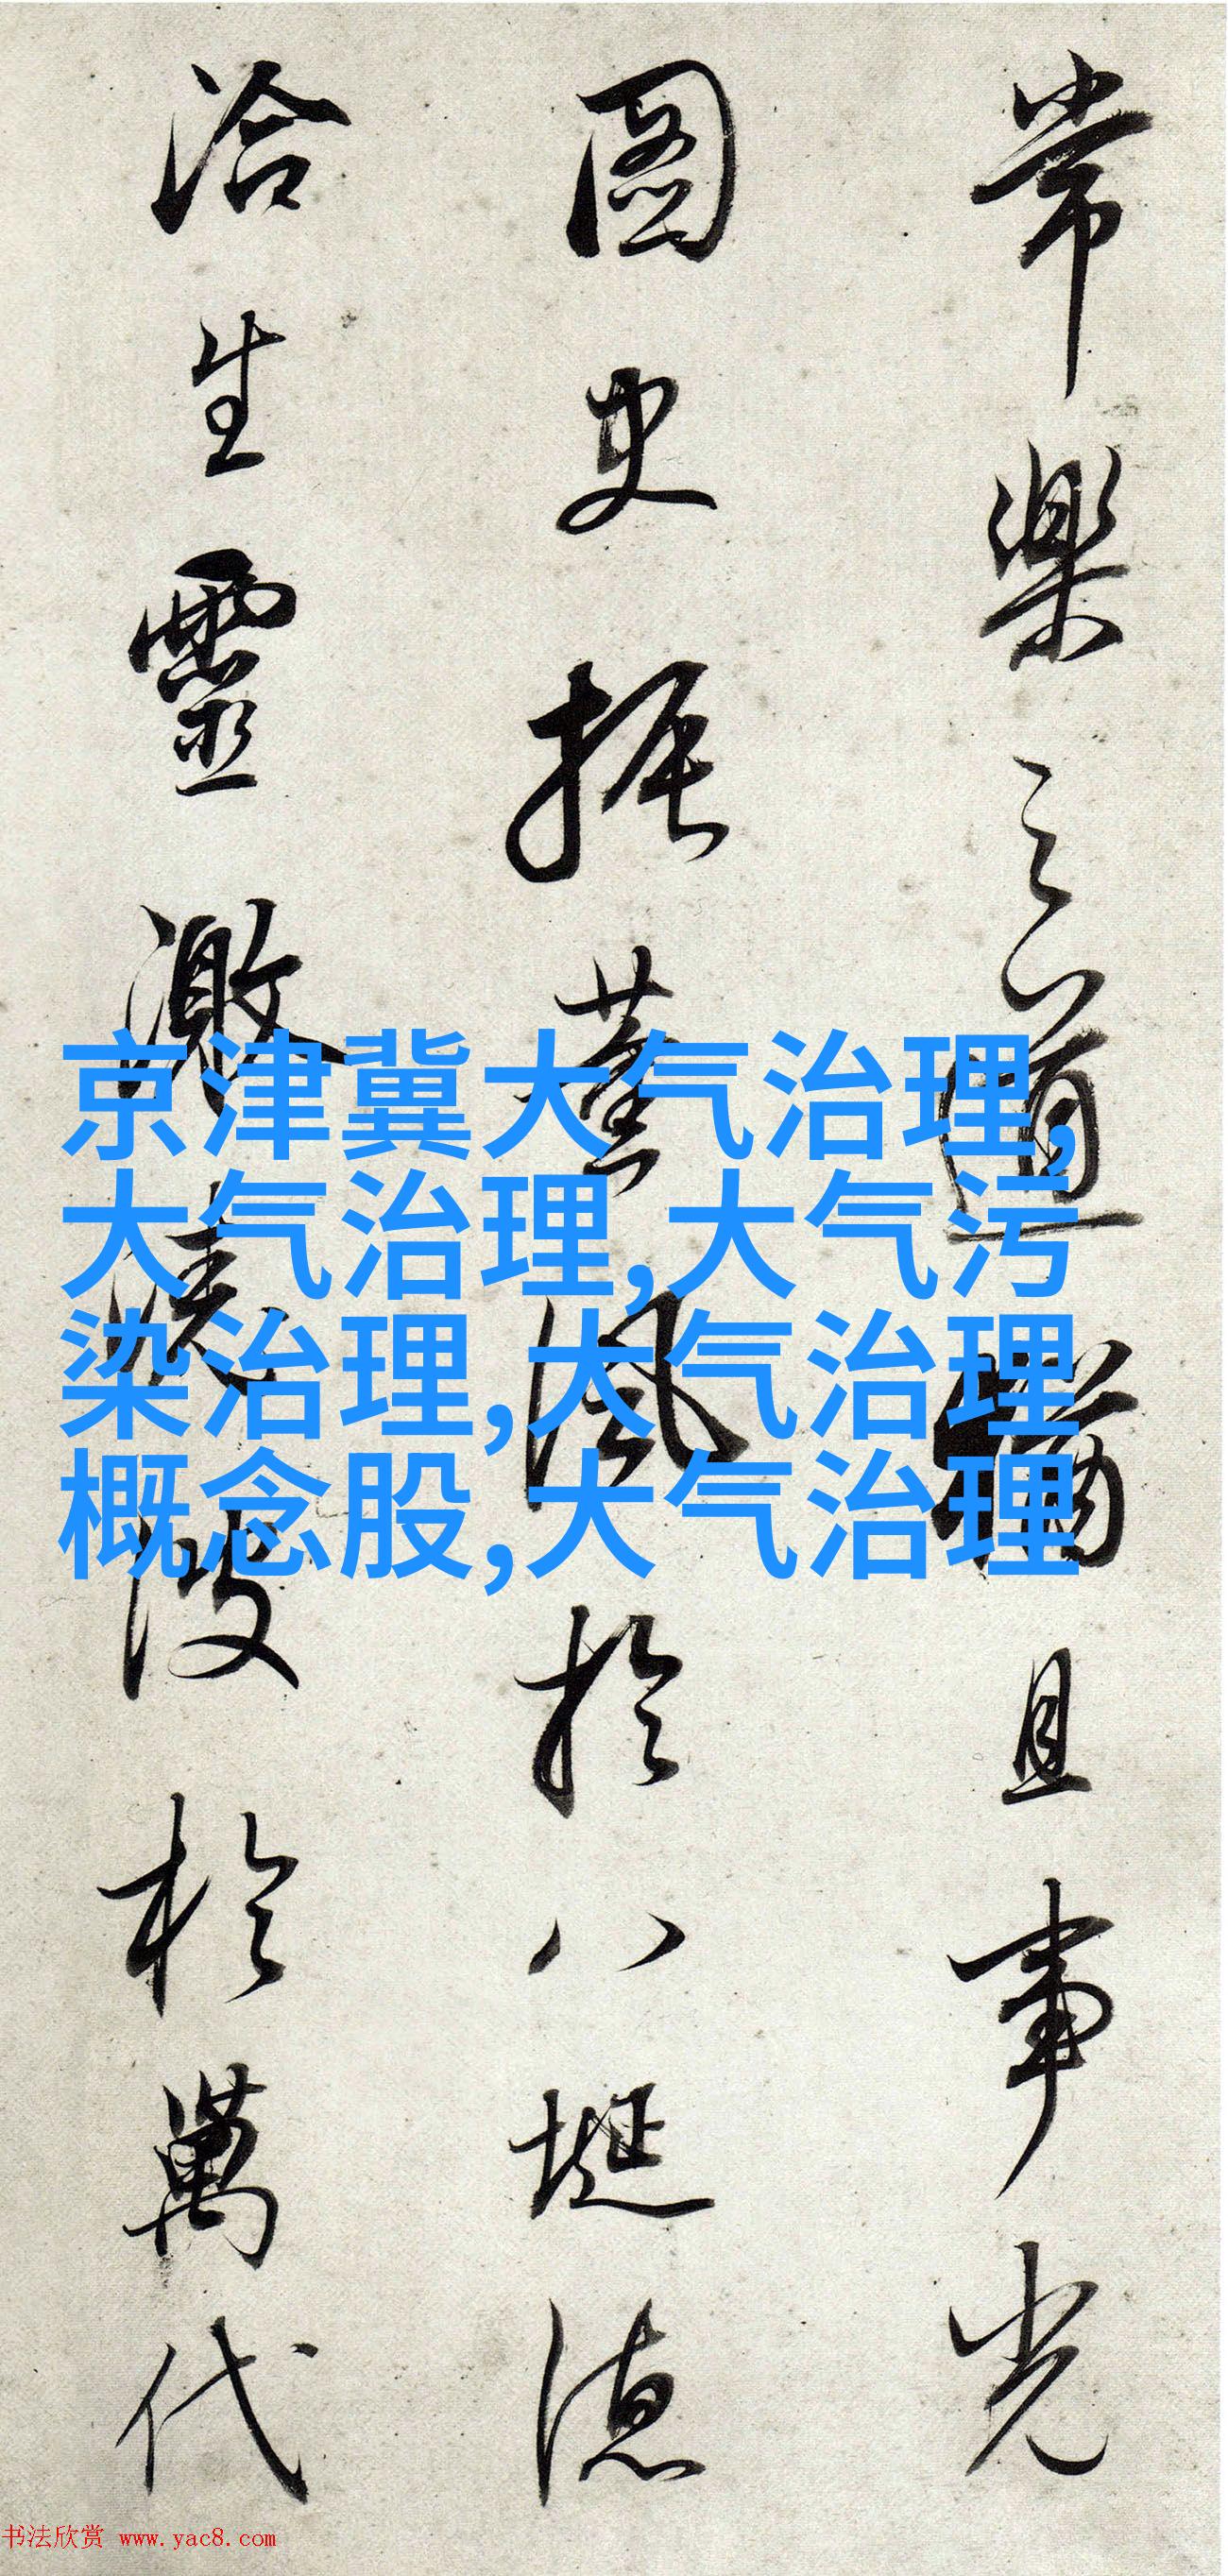 常樂之道醻且事光
圖史振薰風於八埏德
洽生靈激清波於萬代
京津冀大气治理,
大气治理,大气污
染治理,大气治理
概念股,大气治理
书法欣赏 www.yac8.com